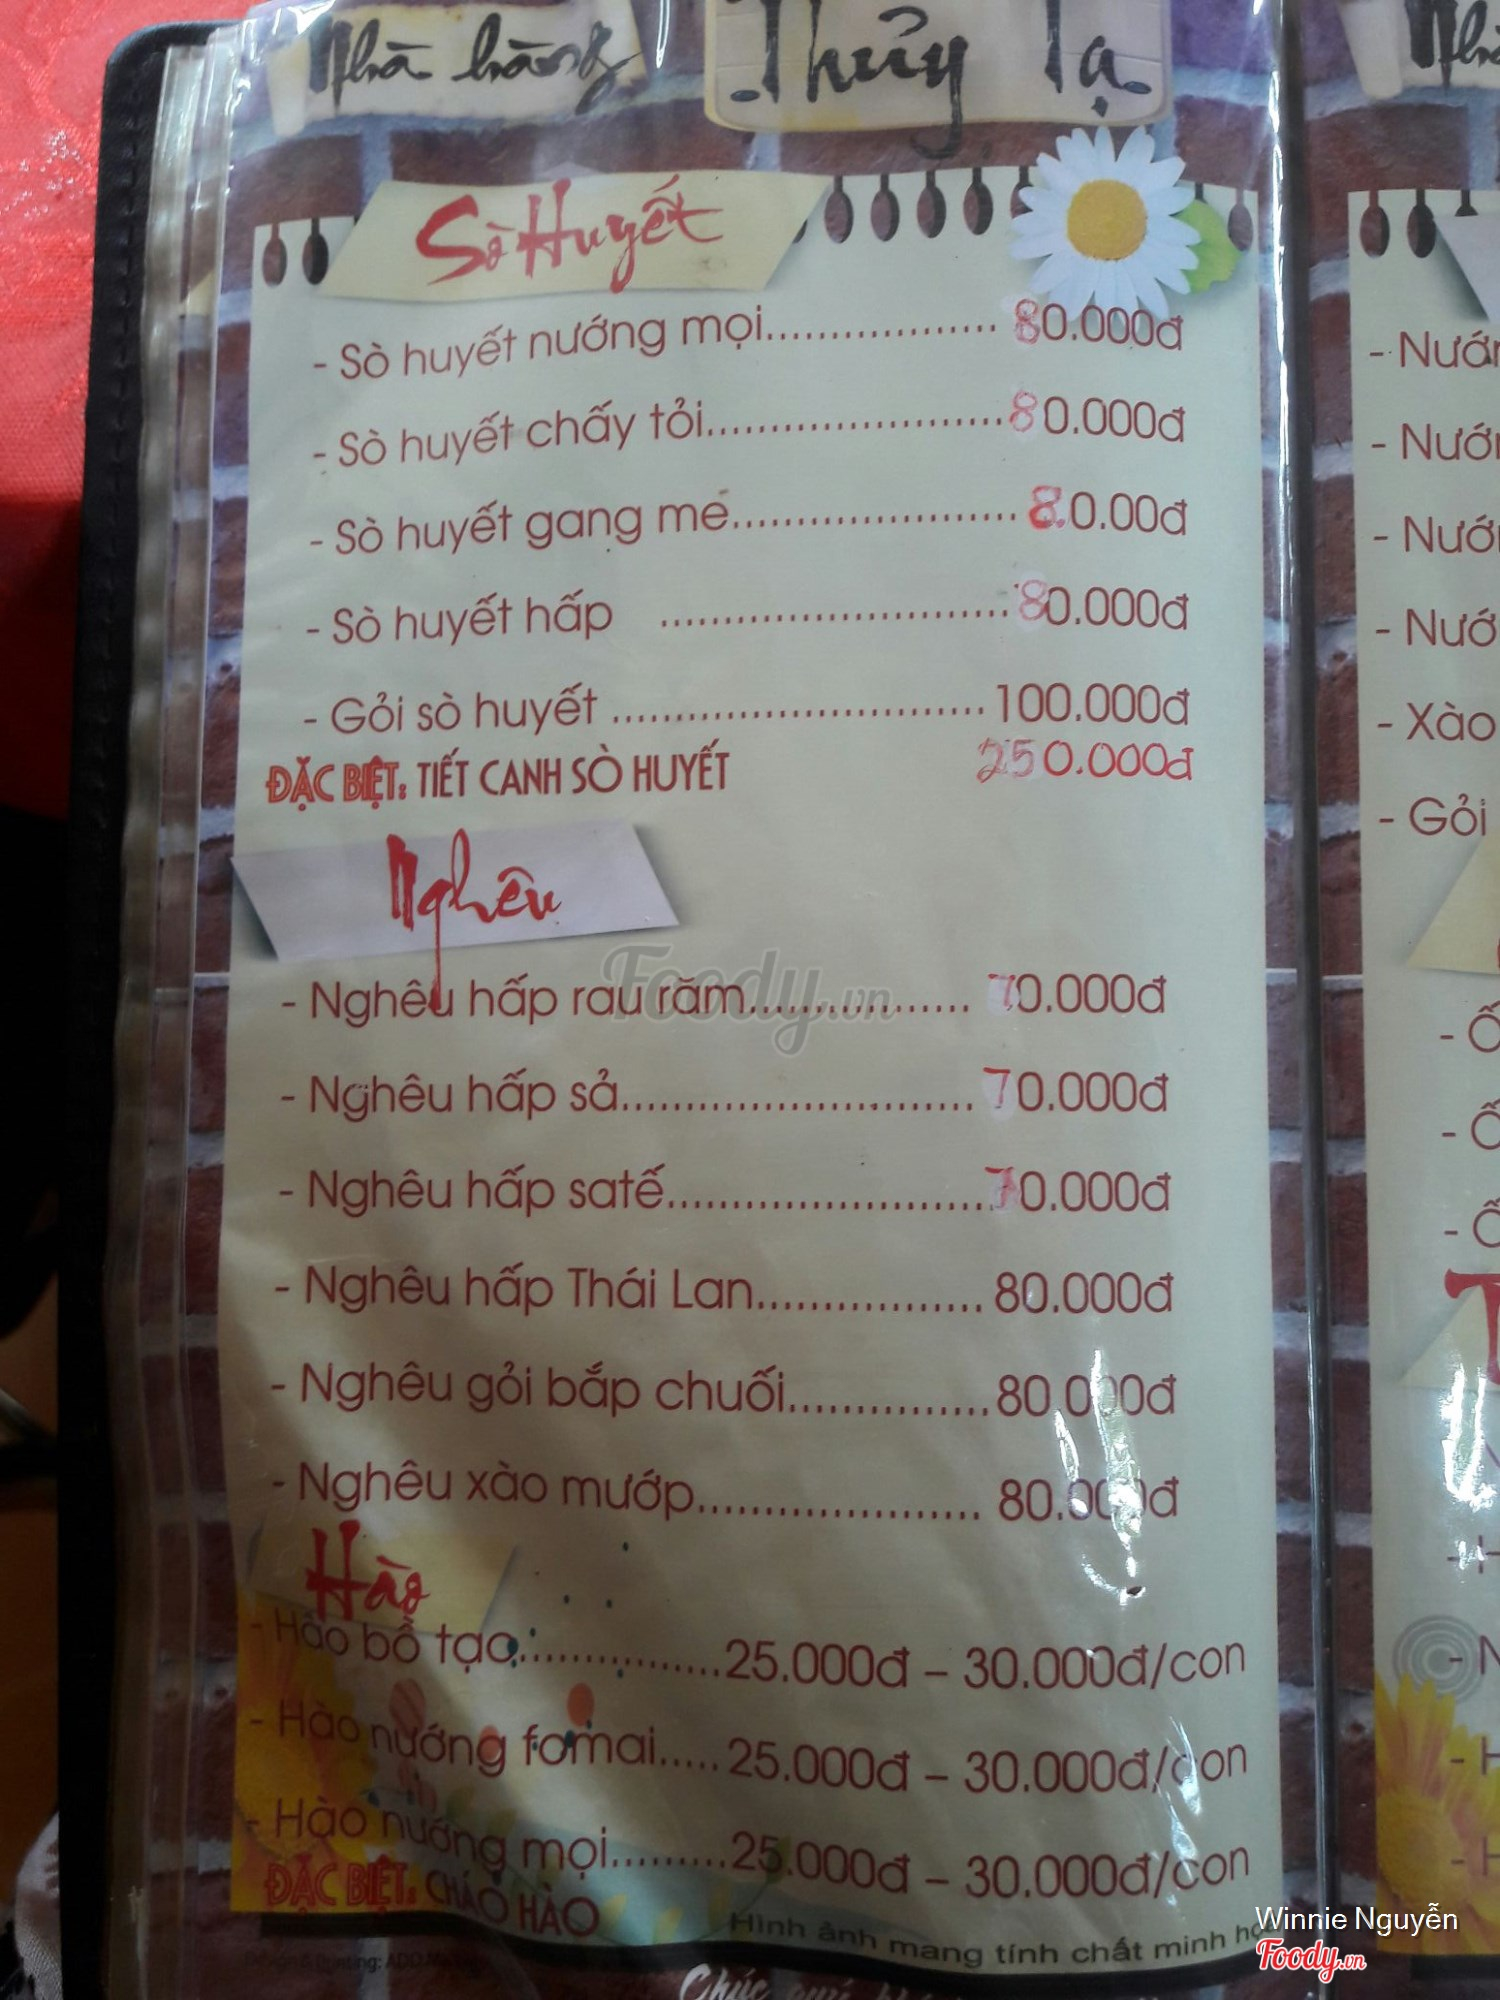 Nhà hàng Thủy Tạ
Sò Huyết
- Sò huyết nướng mọi.................. 80.000đ
- Sò huyết chấy tỏi.......................80.000đ
- Sò huyết gang mé...................... 8.0.00đ
- Sò huyết hấp ...........................80.000đ
- Gỏi sò huyết .............................100.000đ
ĐẶC BIỆT: TIẾT CANH SÒ HUYẾT 250.000đ
Nghêu
- Nghêu hấp rau răm................. 70.000đ
- Nghêu hấp sả........................... 70.000đ
- Nghêu hấp satế.........................70.000đ
- Nghêu hấp Thái Lan................. 80.000đ
- Nghêu gỏi bắp chuối...............80.000đ
- Nghêu xào mướp..................... 80.000đ
Hào
- Hào bồ tạo................25.000đ – 30.000đ/con
- Hào nướng fomai.....25.000đ – 30.000đ/con
- Hào nướng mọi.........25.000đ – 30.000đ/con
ĐẶC BIỆT: CHÁO HÀO
Hình ảnh mang tính chất minh
Chúc quý
- Nướ
- Nướ
- Nướ
- Nướ
- Xào
- Gỏi
- Ố
- Ố
- Ố
Foody.vn
Winnie Nguyễn
Foody.vn